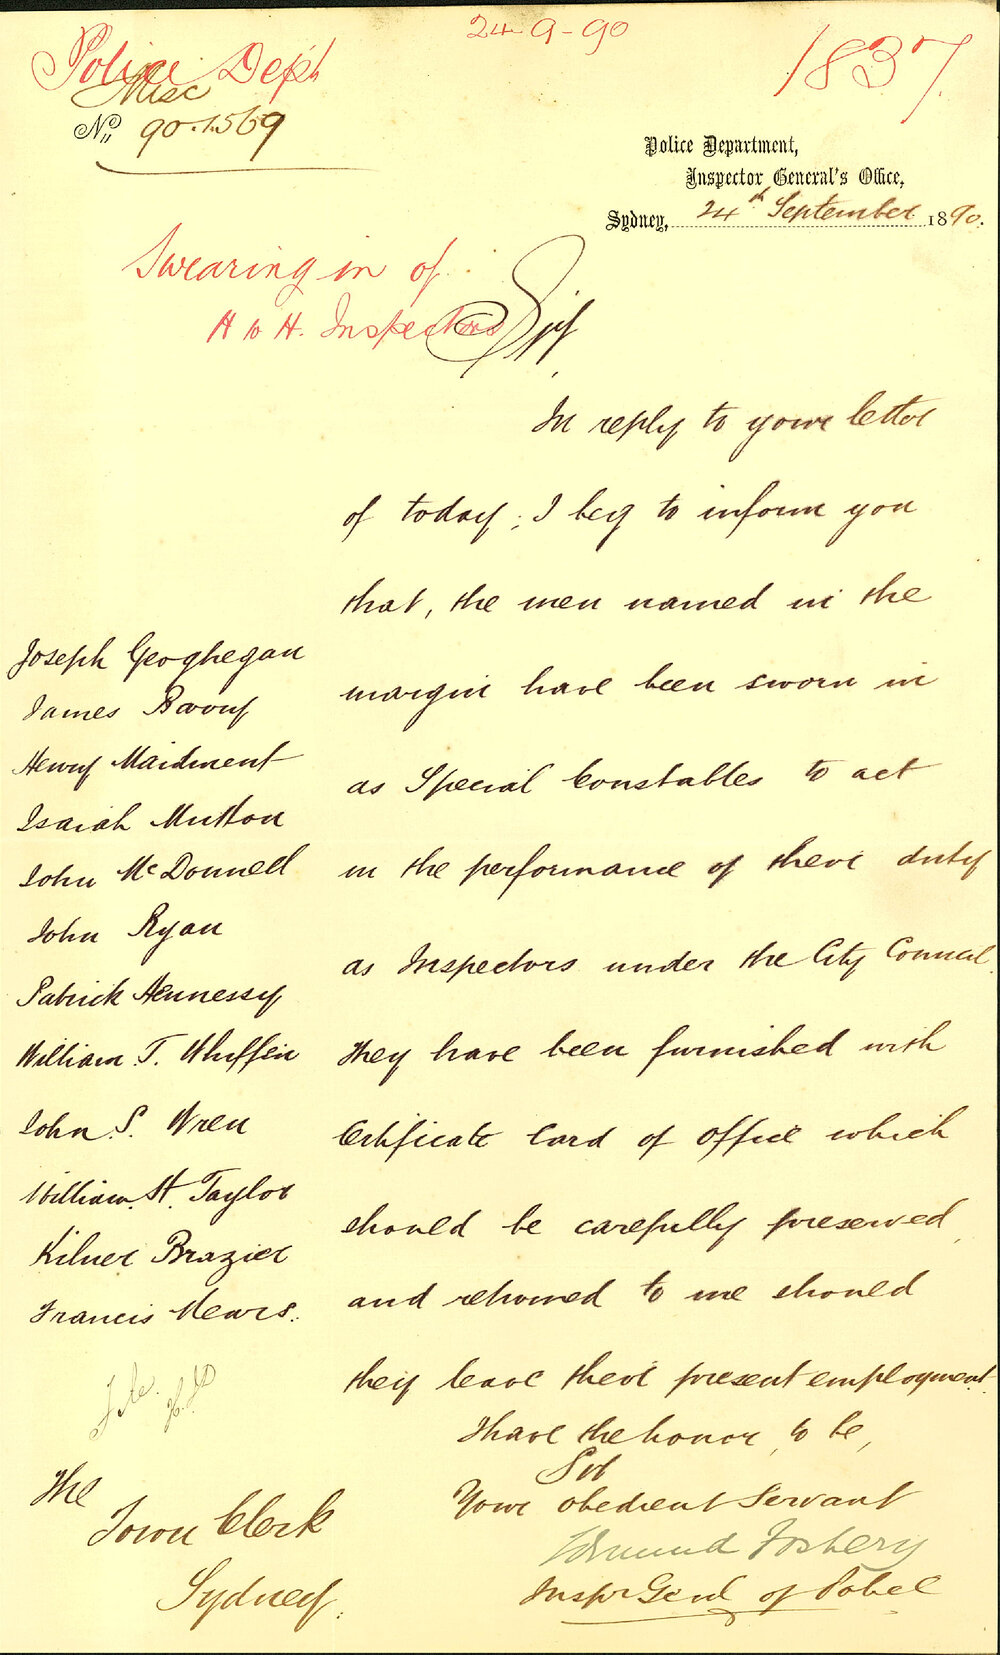 24-9-90
Police Dept
1837
Misc
No. 90.1.569
Police Department,
Inspector General's Office,
Sydney, 24th September 1890.
Swearing in of
H to H. Inspectors
Sir,
In reply to your letter
of today, I beg to inform you
that, the men named in the
margin have been sworn in
as Special Constables to act
in the performance of their duty
as Inspectors under the City Council.
They have been furnished with
Certificate Card of Office which
should be carefully preserved,
and returned to me should
they leave their present employment.
Joseph Geoghegan
James
Henry Maidment
Isaiah Mutton
John McDonnell
John Ryan
Patrick Hennessy
William T. Whiffin
John S. Wren
William H. Taylor
Kilner Brazier
Francis Mears.
I have the honor to be,
Sir
Your obedient Servant
Edmund Fosbery
Inspr Genl of Police
The
Town Clerk
Sydney.